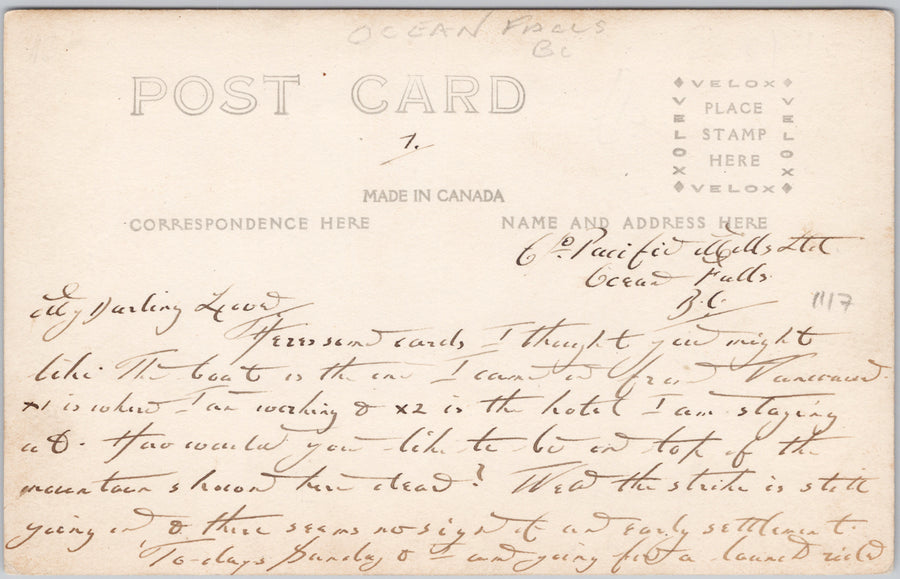 OCEAN FALLS
BC
POST CARD
1.
MADE IN CANADA
CORRESPONDENCE HERE
VELOX
VELOX
VELOX
VELOX
PLACE
STAMP
HERE
NAME AND ADDRESS HERE
C/o Pacific Mills Ltd
Ocean Falls
B.C.
1117
My Darling Love,
Heres some cards I thought you might
like. The boat is the one I came on from Vancouver.
x1 is where I am working & x2 is the hotel I am staying
at. How would you like to be on top of the
mountain shown here dear? Well the strike is still
going on, & there seems no sign of an early settlement.
To-days Sunday & I am going for a launch ride